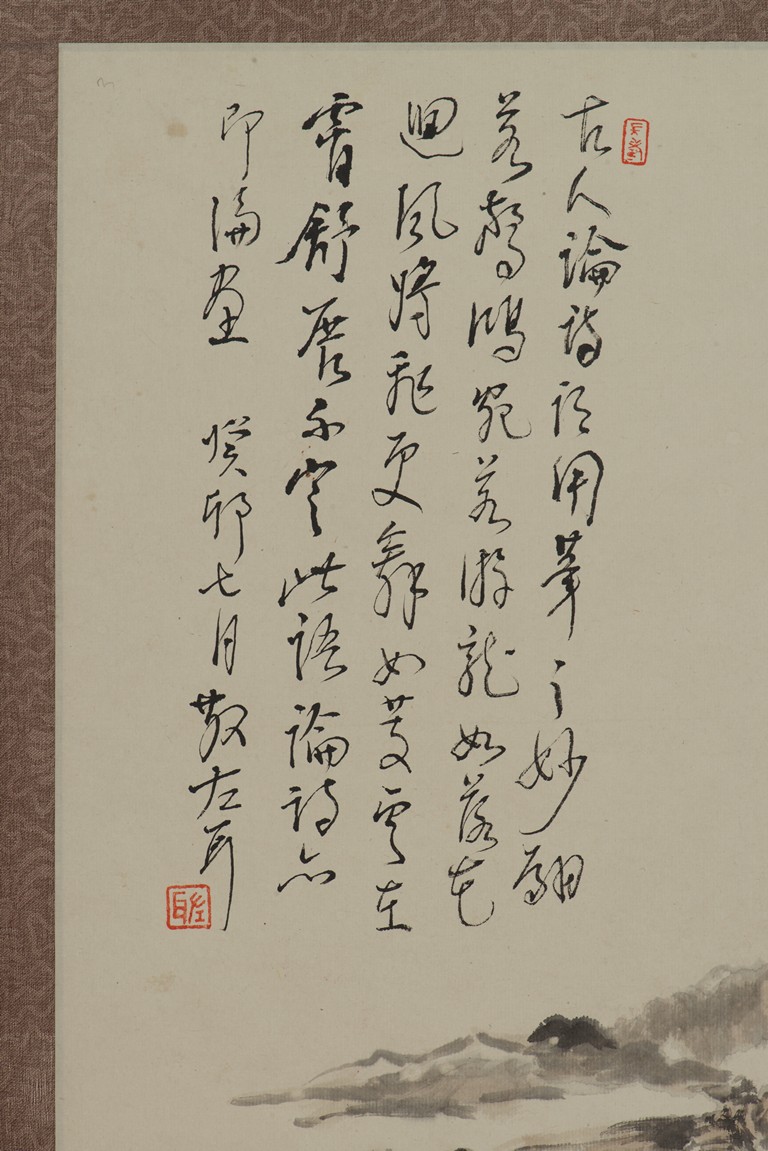 古人論詩謂用筆之妙翩
若驚鴻宛若游龍如落花
迴風將飛更舞如慶雲在
霄舒展不定此語論詩亦
即論畫 癸卯七月散左耳